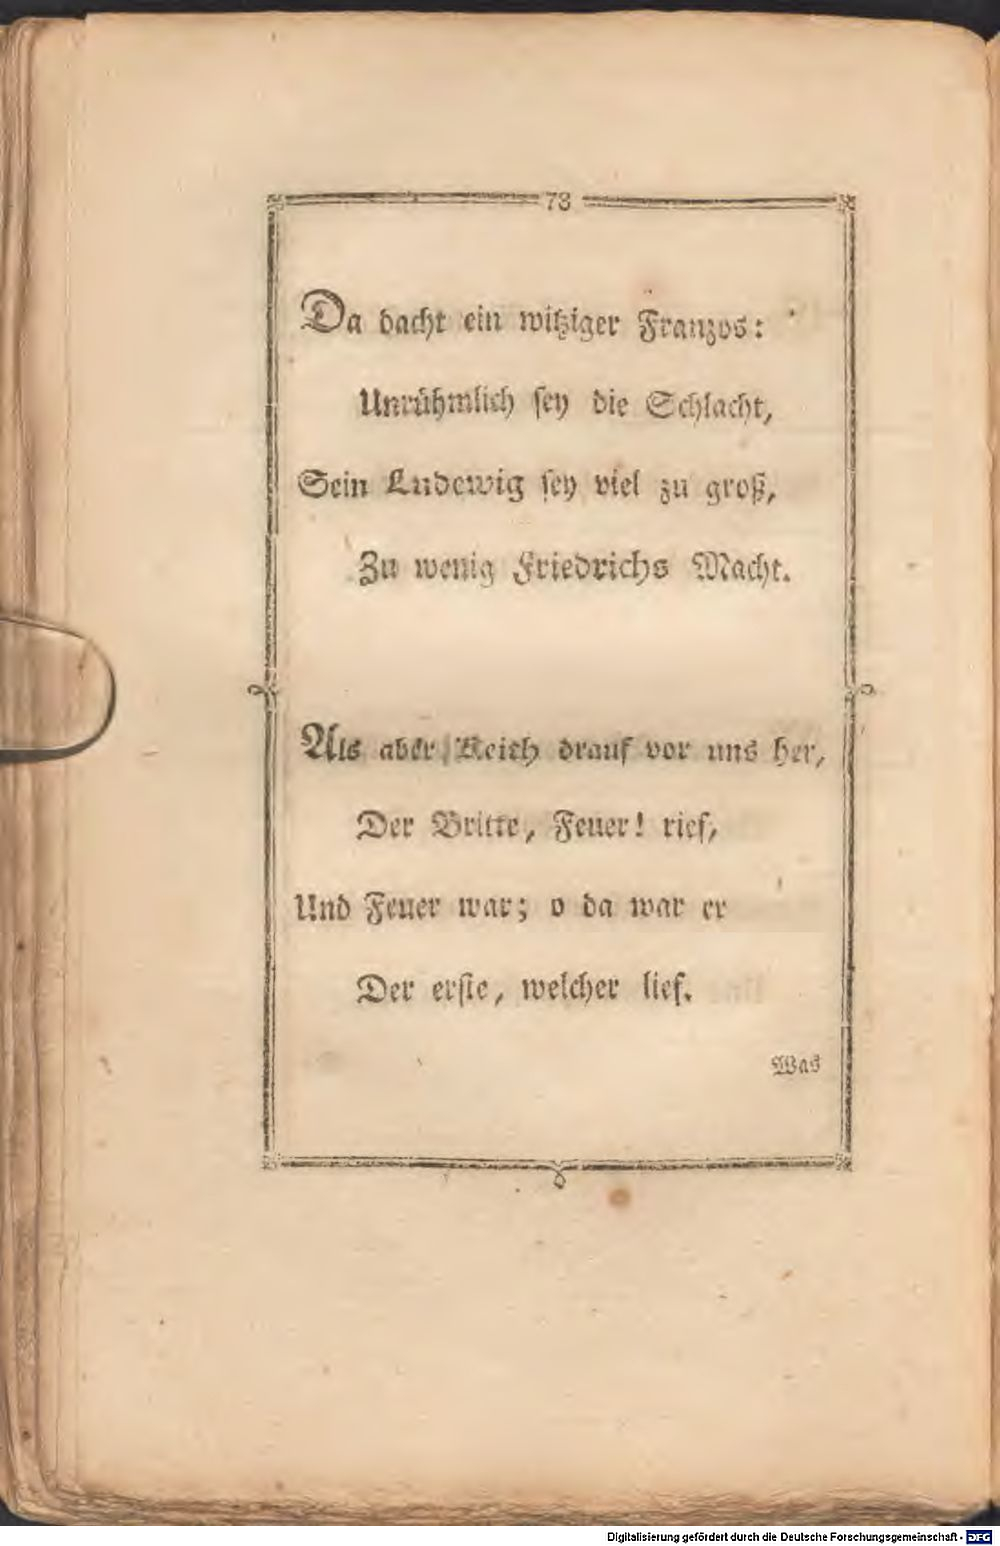 73
Da dacht ein witziger Franzos:
Unrühmlich sey die Schlacht,
Sein Ludewig sey viel zu groß,
Zu wenig Friedrichs Macht.
Als aber Keith drauf vor uns her,
Der Britte, Feuer! rief,
Und Feuer war; o da war er
Der erste, welcher lief.
Was
Digitalisierung gefördert durch die Deutsche Forschungsgemeinschaft - DFG